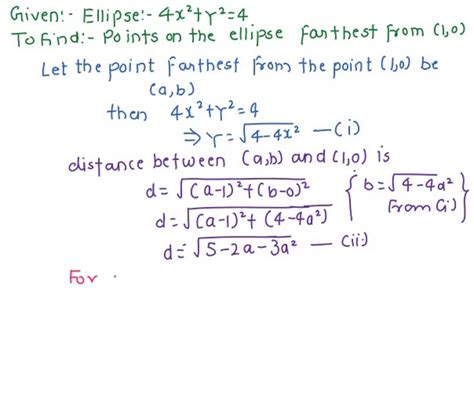 Given:- Ellipse:- 4x²+y²=4
To Find:- Points on the ellipse farthest from (1,0)
Let the point farthest from the point (1,0) be
(a,b)
then 4x²+y²=4
⇒ y=√4-4x² —(i)
distance between (a,b) and (1,0) is
d=√(a-1)²+(b-0)² { b=√4-4a² }
d=√(a-1)²+(4-4a²) { From (i) }
d=√5-2a-3a² — (ii)
For